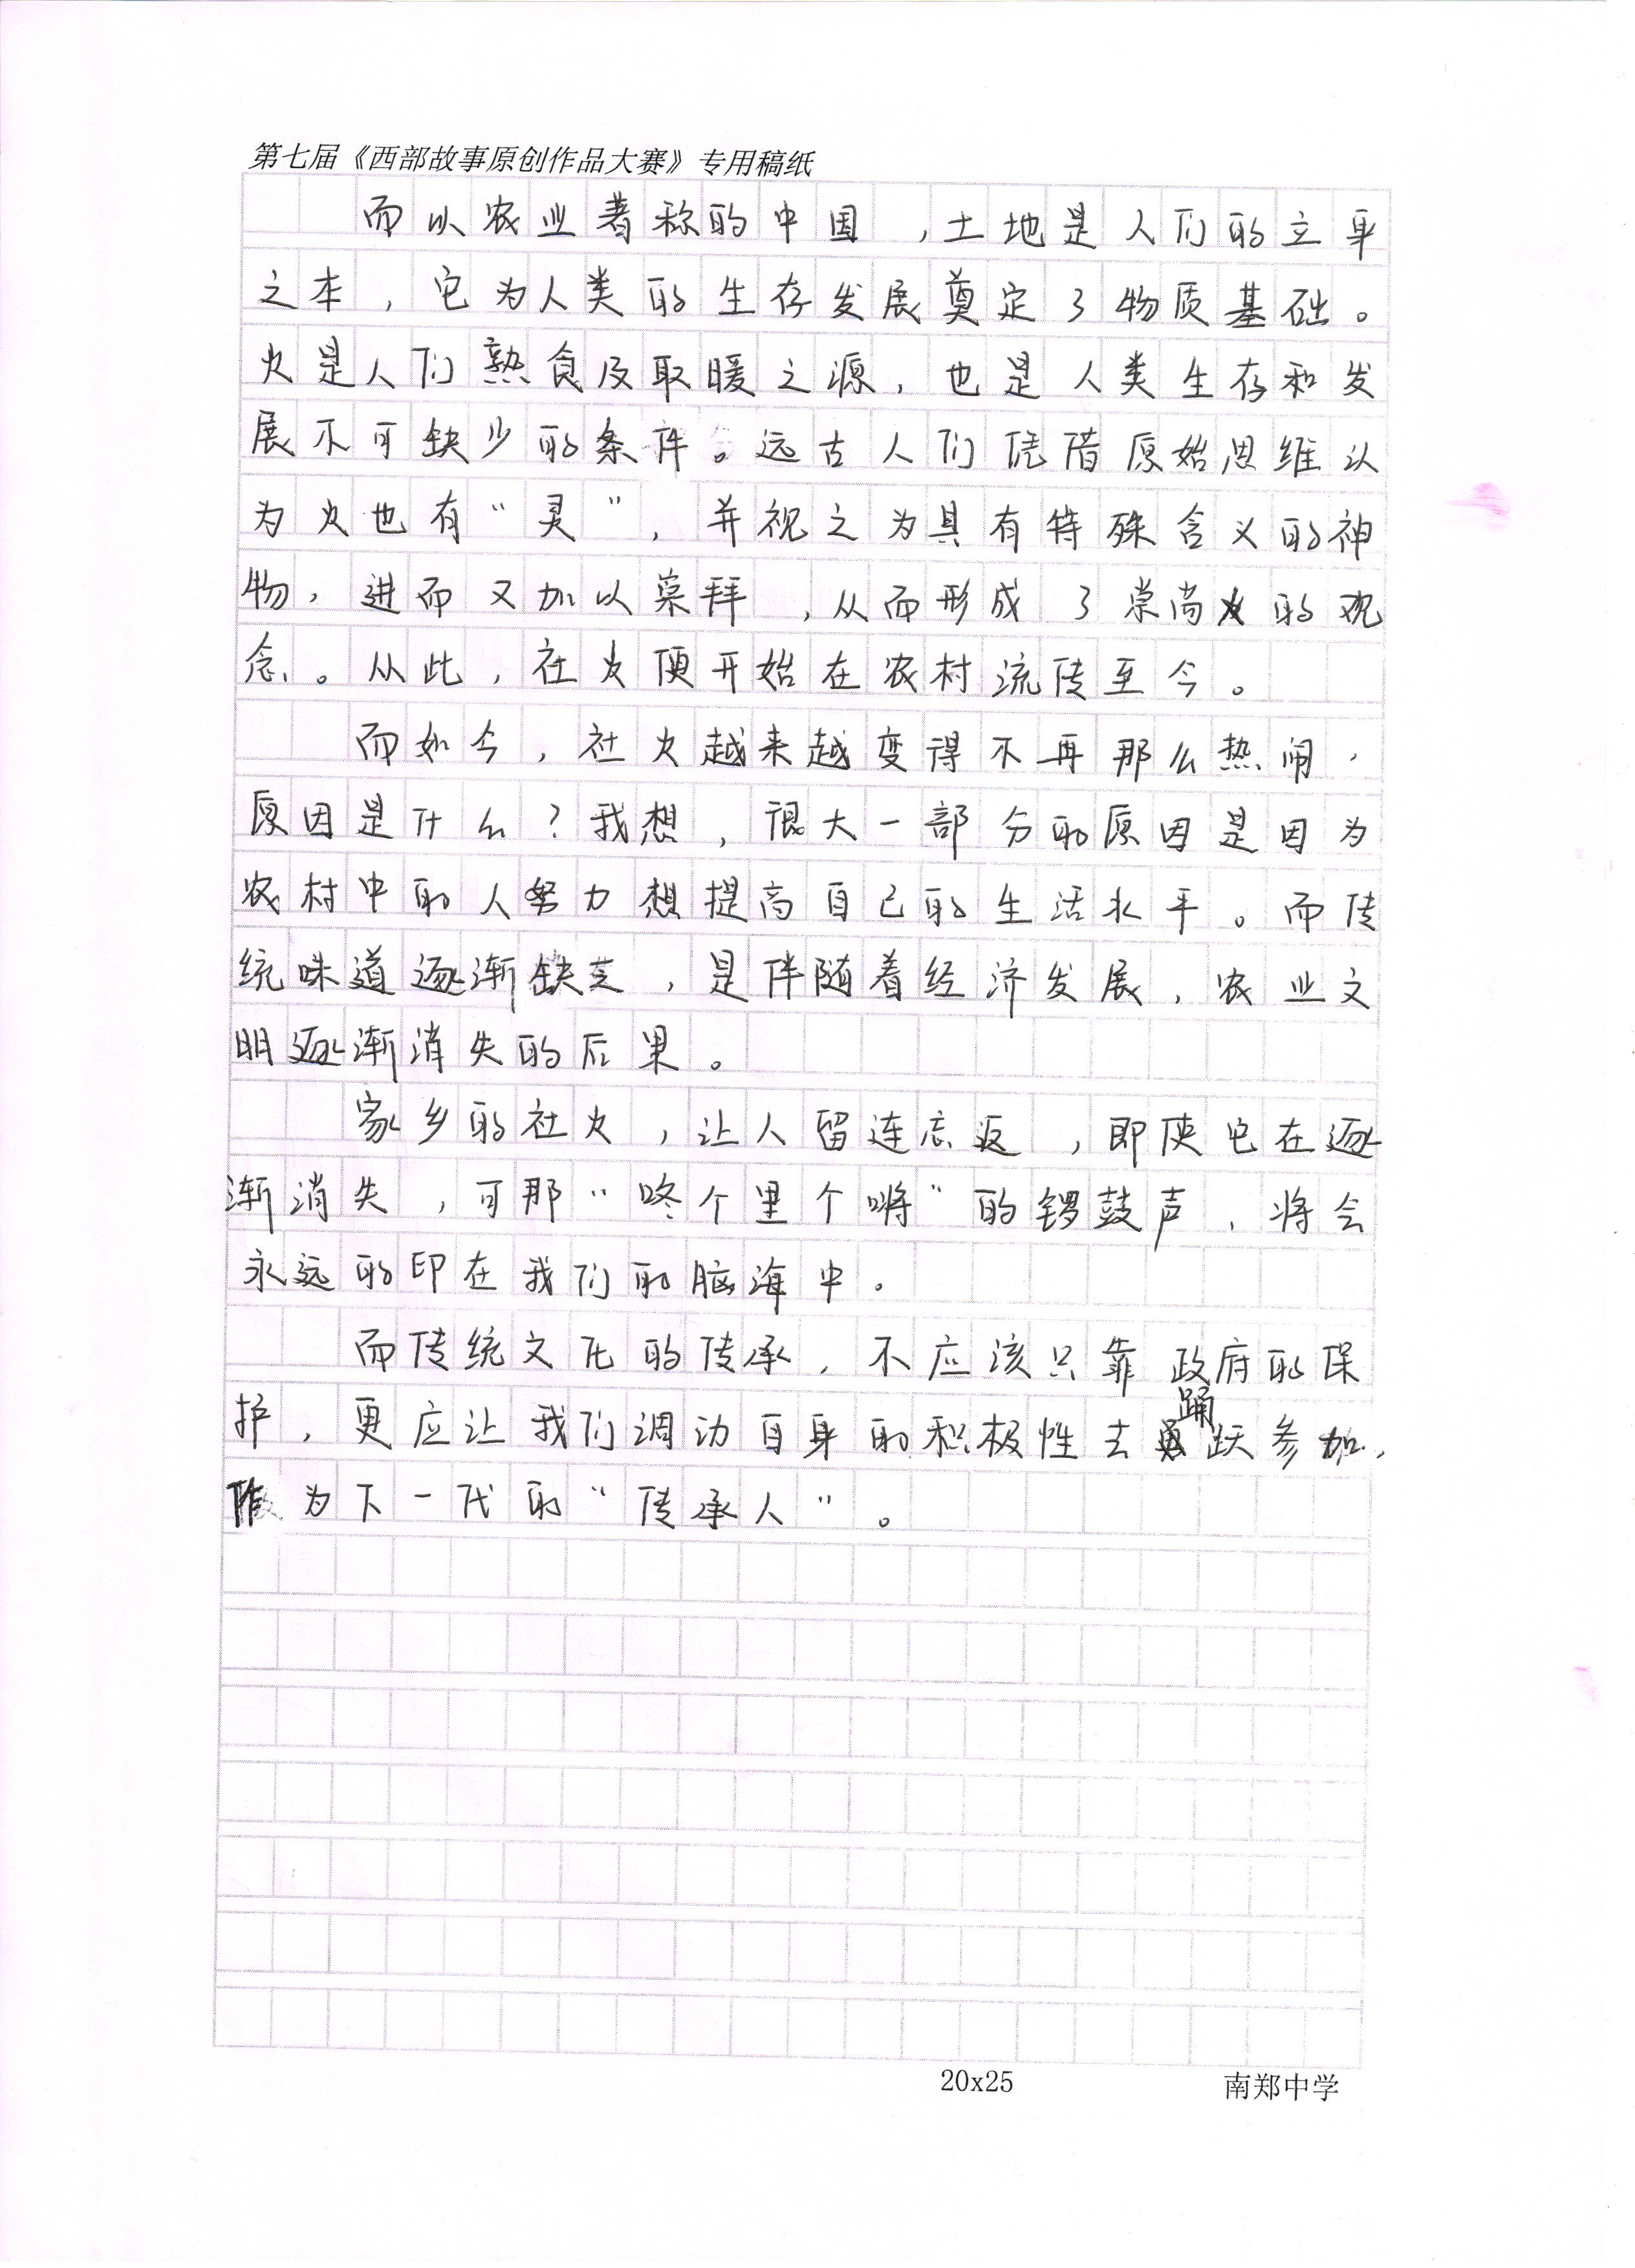 第七届《西部故事原创作品大赛》专用稿纸
而以农业著称的中国,土地是人们的立身
之本,它为人类的生存发展奠定了物质基础。
火是人们熟食及取暖之源,也是人类生存和发
展不可缺少的条件。远古人们凭借原始思维认
为火也有“灵”,并视之为具有特殊含义的神
物,进而又加以崇拜,从而形成了崇尚火的观
念。从此,社火便开始在农村流传至今。
而如今,社火越来越变得不再那么热闹,
原因是什么?我想,很大一部分的原因是因为
农村中的人努力想提高自己的生活水平。而传
统味道逐渐缺乏,是伴随着经济发展,农业文
明逐渐消失的后果。
家乡的社火,让人留连忘返,即使它在逐
渐消失,可那“咚个里个锵”的锣鼓声,将会
永远的印在我们的脑海中。
而传统文化的传承,不应该只靠政府的保
护,更应让我们调动自身的积极性去踊跃参加,
作为下一代的“传承人”。
20x25 南郑中学